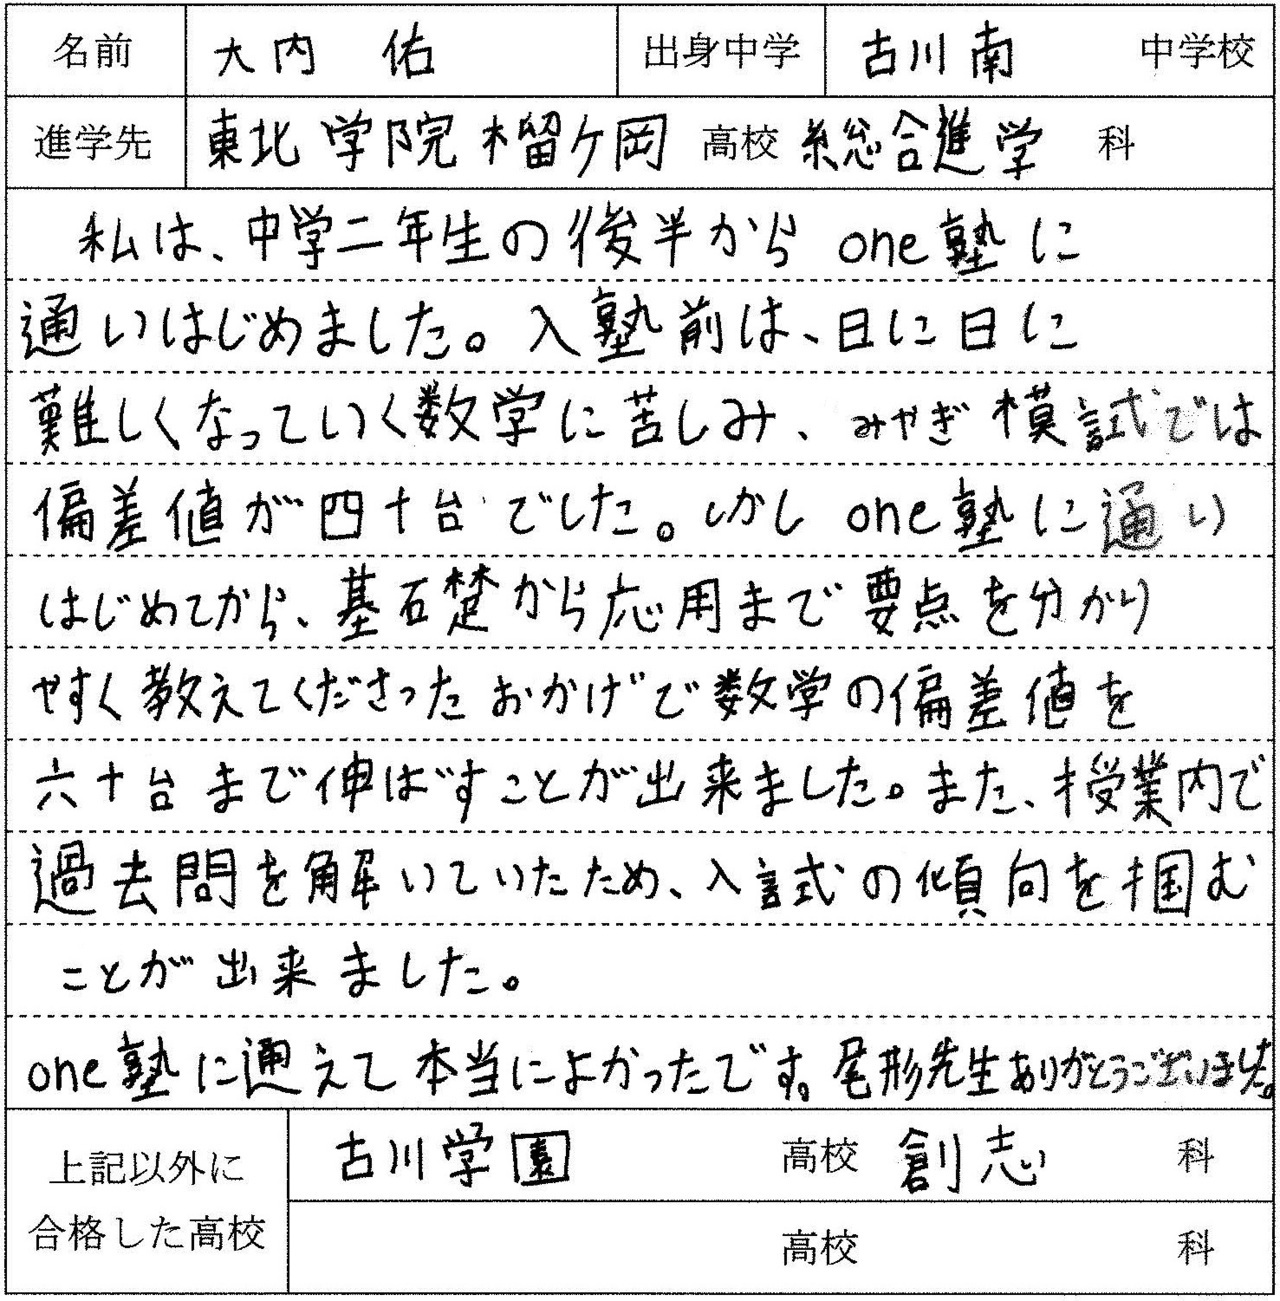 名前 大内 佑 出身中学 古川南 中学校
進学先 東北学院榴ケ岡 高校 総合進学 科
私は、中学二年生の後半から one塾に
通いはじめました。入塾前は、日に日に
難しくなっていく数学に苦しみ、みやぎ模試では
偏差値が四十台でした。しかし one塾に通い
はじめてから、基礎から応用まで要点を分かり
やすく教えてくださったおかげで数学の偏差値を
六十台まで伸ばすことが出来ました。また、授業内で
過去問を解いていたため、入試の傾向を掴む
ことが出来ました。
one塾に通えて本当によかったです。尾形先生ありがとうございました。
上記以外に
合格した高校
古川学園 高校 創志 科
高校 科